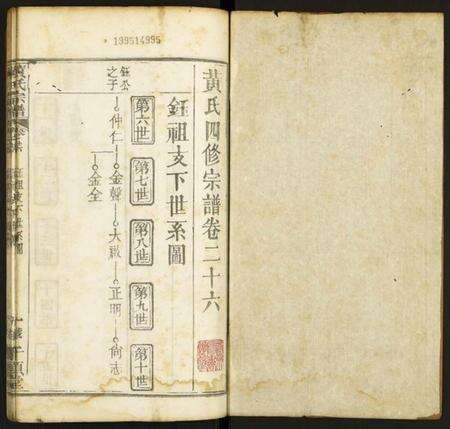 199514995
黃氏四修宗譜卷二十六
鈺祖支下世系圖
第六世
第七世
第八世
第九世
第十世
鈺公之子
仲仁
金聲
大
正明
尚志
金全
黃氏宗譜
鈺祖支下世系圖